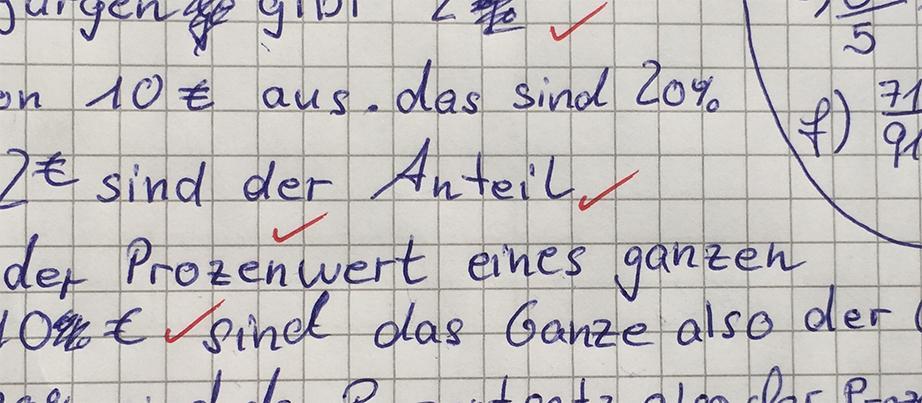 gibt 2
5
on 10 € aus. das sind 20%
f) 71
91
2€ sind der Anteil
der Prozenwert eines ganzen
10 € sind das Ganze also der